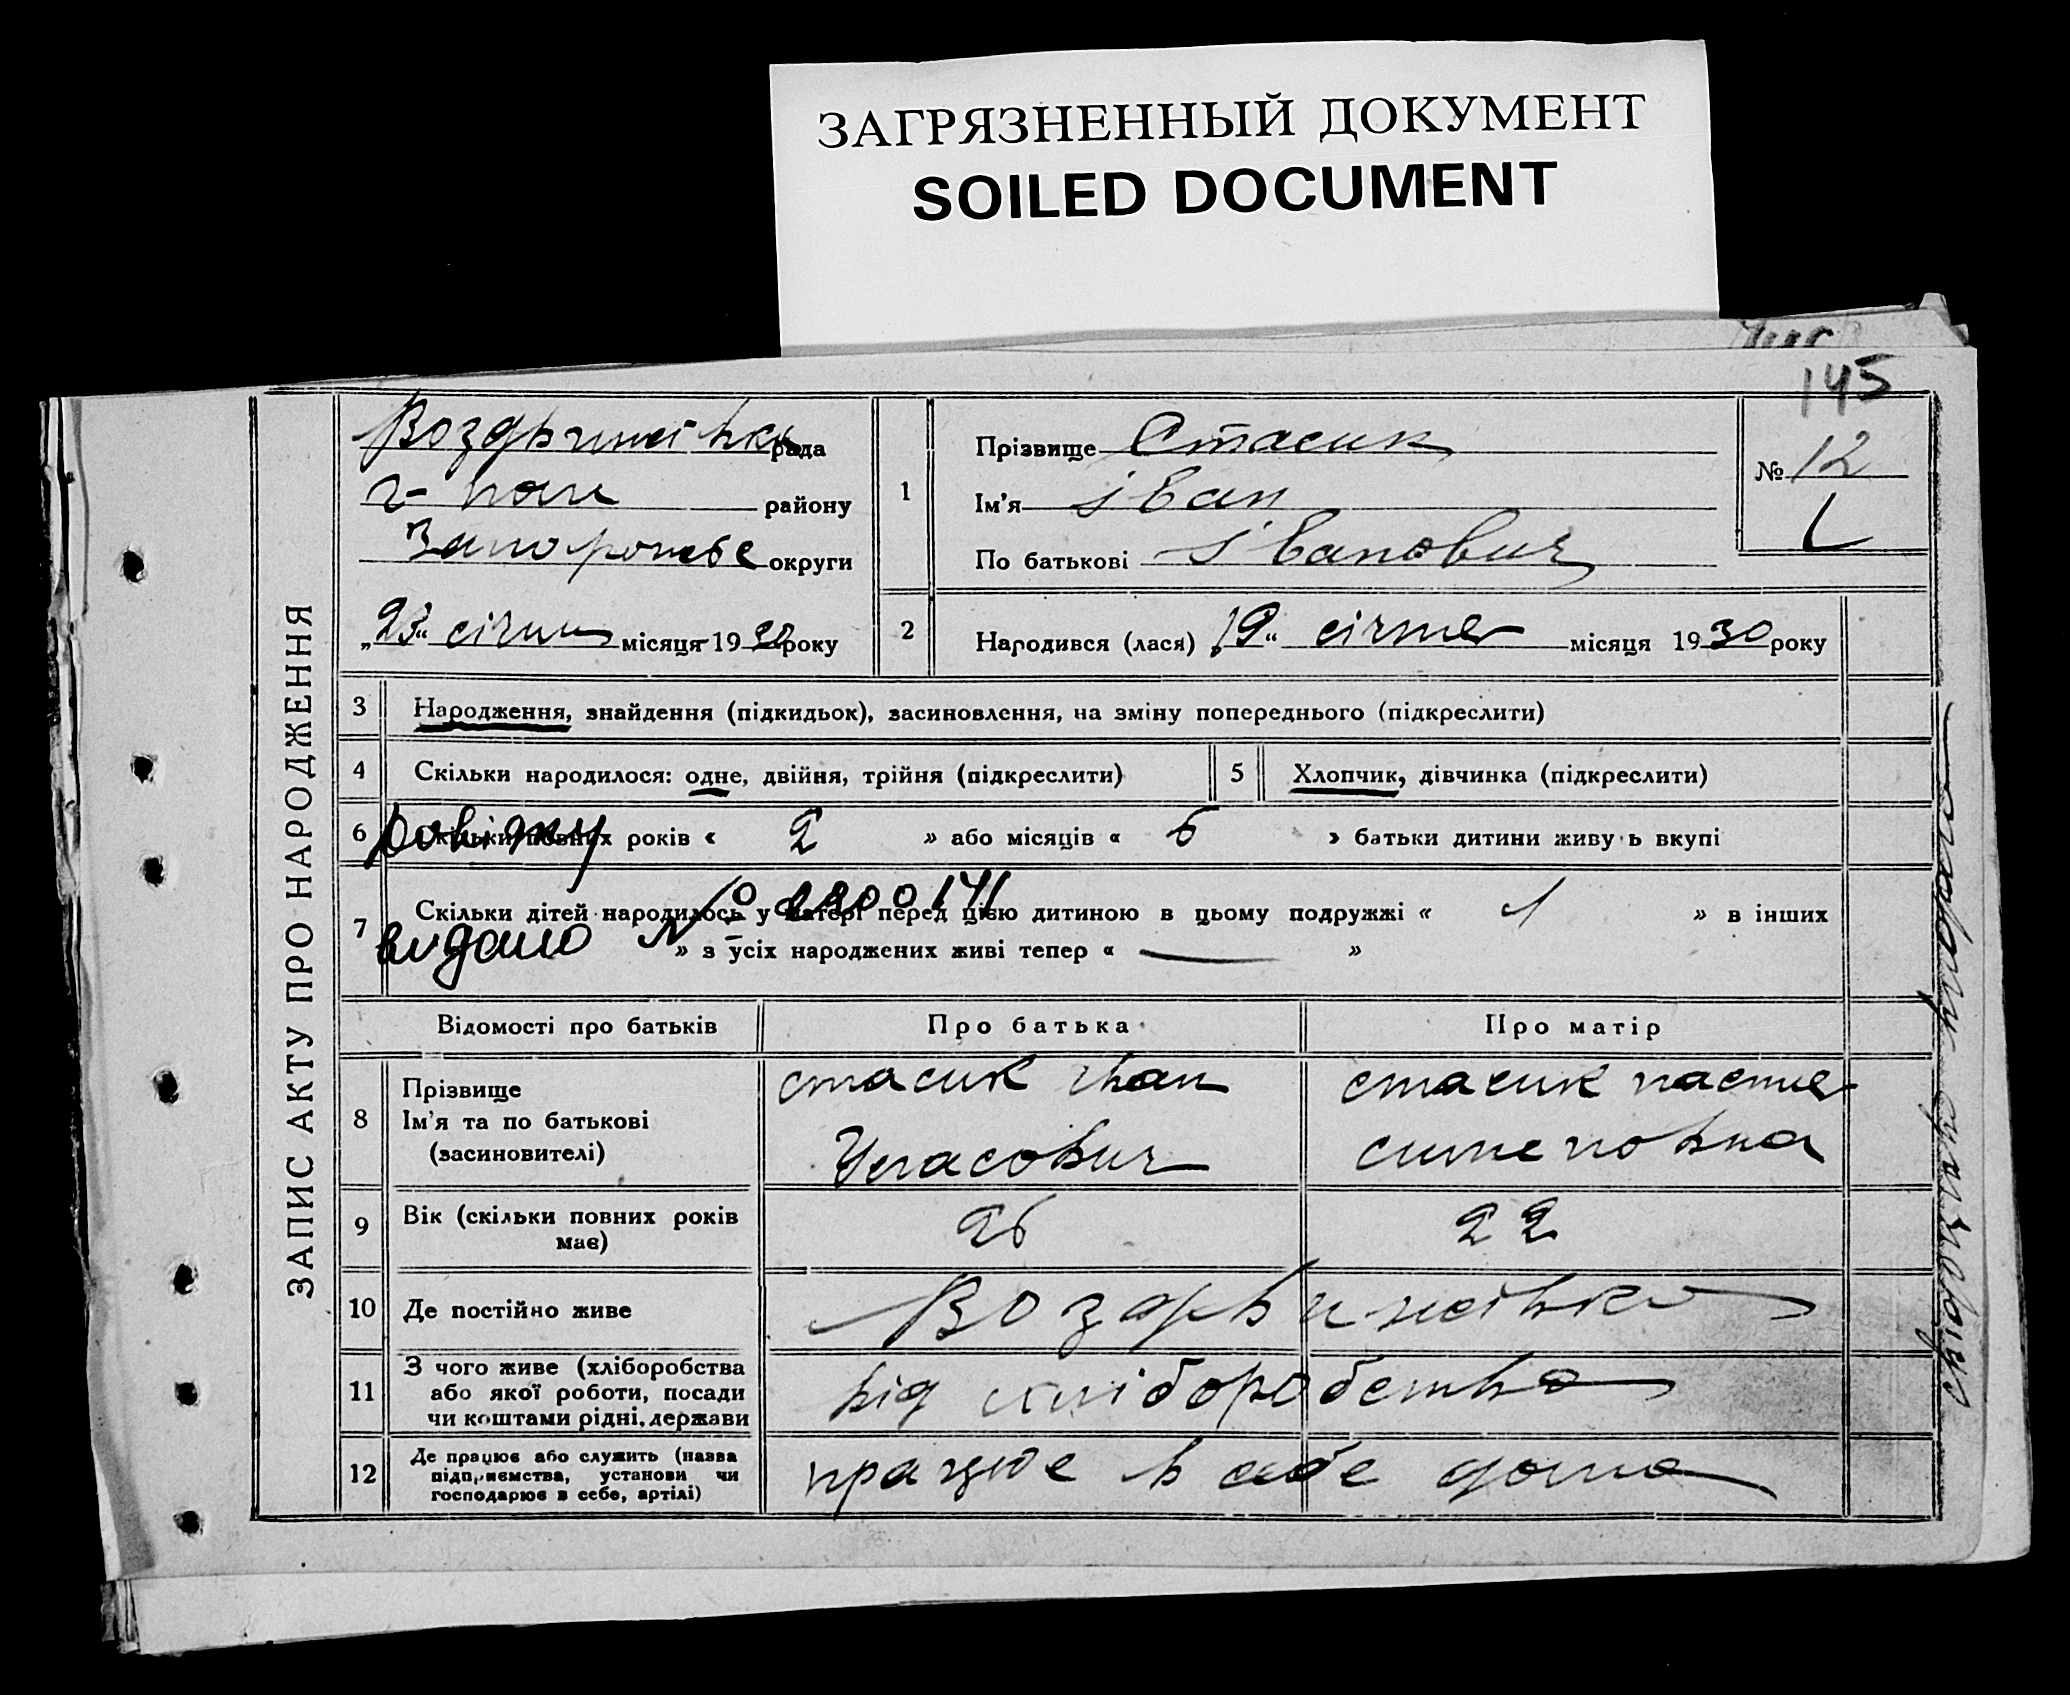 ЗАГРЯЗНЕННЫЙ ДОКУМЕНТ
SOILED DOCUMENT
145
ЗАПИС АКТУ ПРО НАРОДЖЕННЯ
рада
району
округи
„23“ січня місяця 1930 року
1
Прізвище Стасик
Ім'я іван
По батькові івanович
№ 12
2
Народився (лася) „19“ січня місяця 1930 року
3 Народження, знайдення (підкидьок), засиновлення, на зміну попереднього (підкреслити)
4 Скільки народилося: одне, двійня, трійня (підкреслити)
5 Хлопчик, дівчинка (підкреслити)
6 Скільки повних років « 2 » або місяців « 6 » батьки дитини живуть вкупі
Довідку
7 Скільки дітей народилось у матері перед цією дитиною в цьому подружжі « 1 » в інших
видано №
» з усіх народжених живі тепер « — »
Відомості про батьків Про батька Про матір
8 Прізвище
Ім'я та по батькові
(засиновителі)
стасик іван
стасик настя
9 Вік (скільки повних років має)
26
22
10 Де постійно живе
Воздвижівка
11 З чого живе (хліборобства
або якої роботи, посади
чи коштами рідні, держави
від хліборобства
12 Де працює або служить (назва
підприємства, установи чи
господарює в себе, артілі)
працює в себе дома